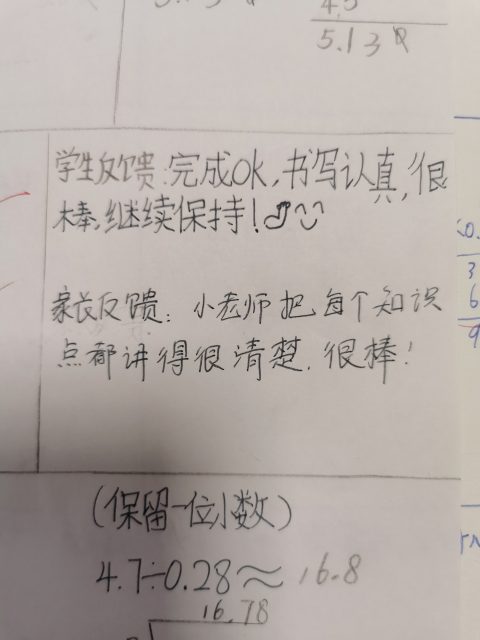 4.5
5.13
学生反馈:完成OK,书写认真,很
棒,继续保持!
家长反馈:小老师把每个知识
点都讲得很清楚.很棒!
(保留一位小数)
4.7÷0.28≈16.8
16.78